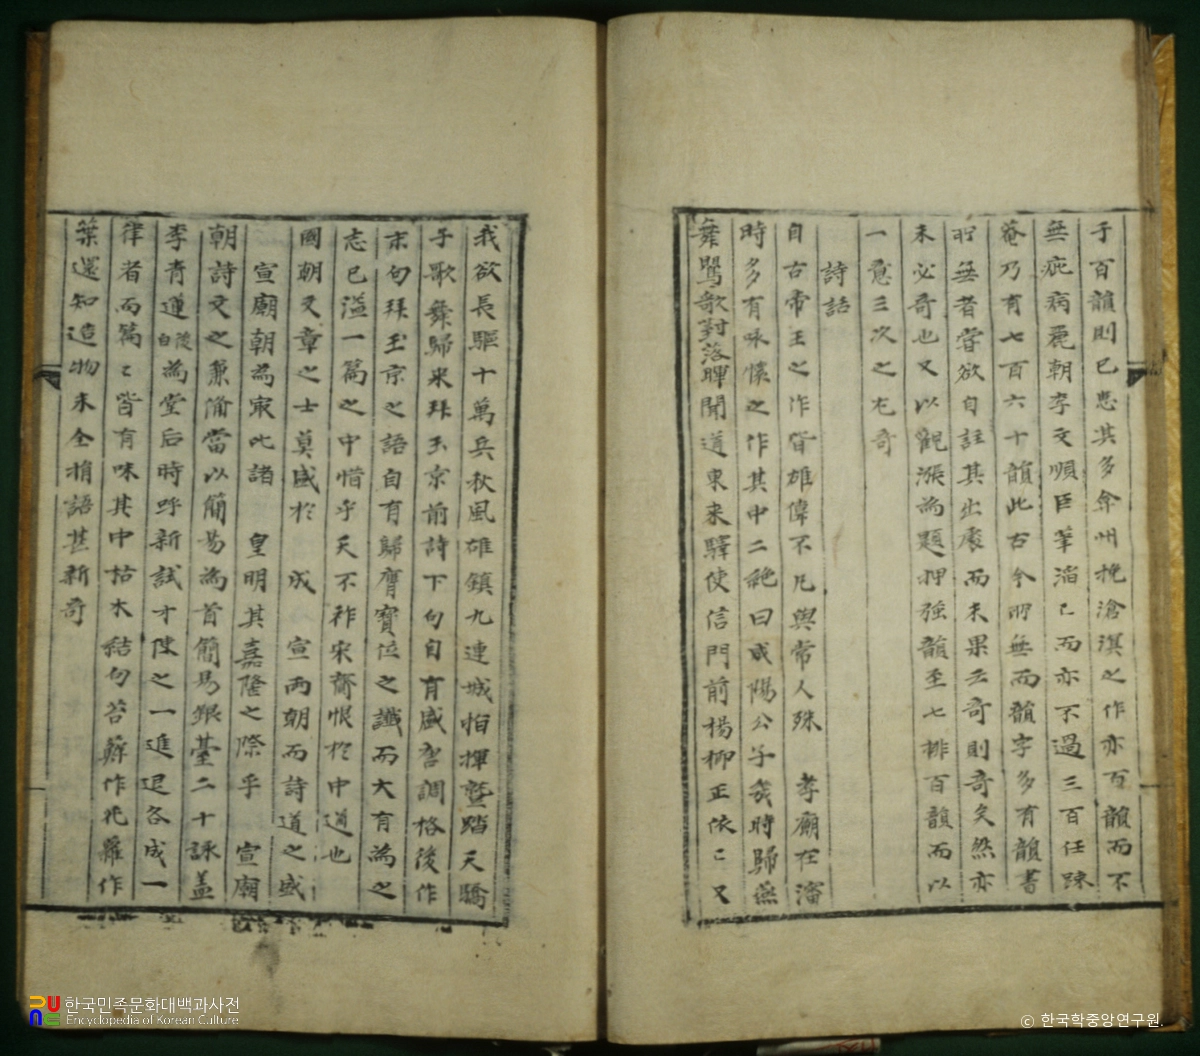 于百韻則已患其多弇州挽滄溟之作亦百韻而不
無疵病麗朝李文順巨筆滔〻而亦不過三百任疎
菴乃有七百六十韻此古今所無而韻字多有韻書
所無者嘗欲自註其出處而未果云奇則奇矣然亦
未必奇也又以觀漲為題押強韻至七排百韻而以
一意三次之尤奇
詩話
自古帝王之作皆雄偉不凡與常人殊 孝廟在瀋
時多有咏懷之作其中二絶曰咸陽公子幾時歸燕
舞鶯歌對落暉聞道東來驛使信門前楊柳正依〻又
我欲長驅十萬兵秋風雄鎮九連城指揮蹔踏天驕
子歌舞歸來拜玉京前詩下句自有盛唐調格後作
末句拜玉京之語自有歸膺寶位之讖而大有為之
志已溢一篇之中惜乎天不祚宋齎恨於中道也
國朝文章之士莫盛於 成 宣兩朝而詩道之盛
宣廟朝為最比諸 皇明其嘉隆之際乎 宣廟
朝詩文之兼備當以簡易為首簡易銀臺二十詠盖
李青蓮白後為堂后時呼新試才陳之一進退各成一
律者而篇〻皆有味其中枯木結句苔蘚作花蘿作
葉還知造物未全捐語甚新奇
한국민족문화대백과사전
Encyclopedia of Korean Culture
© 한국학중앙연구원.